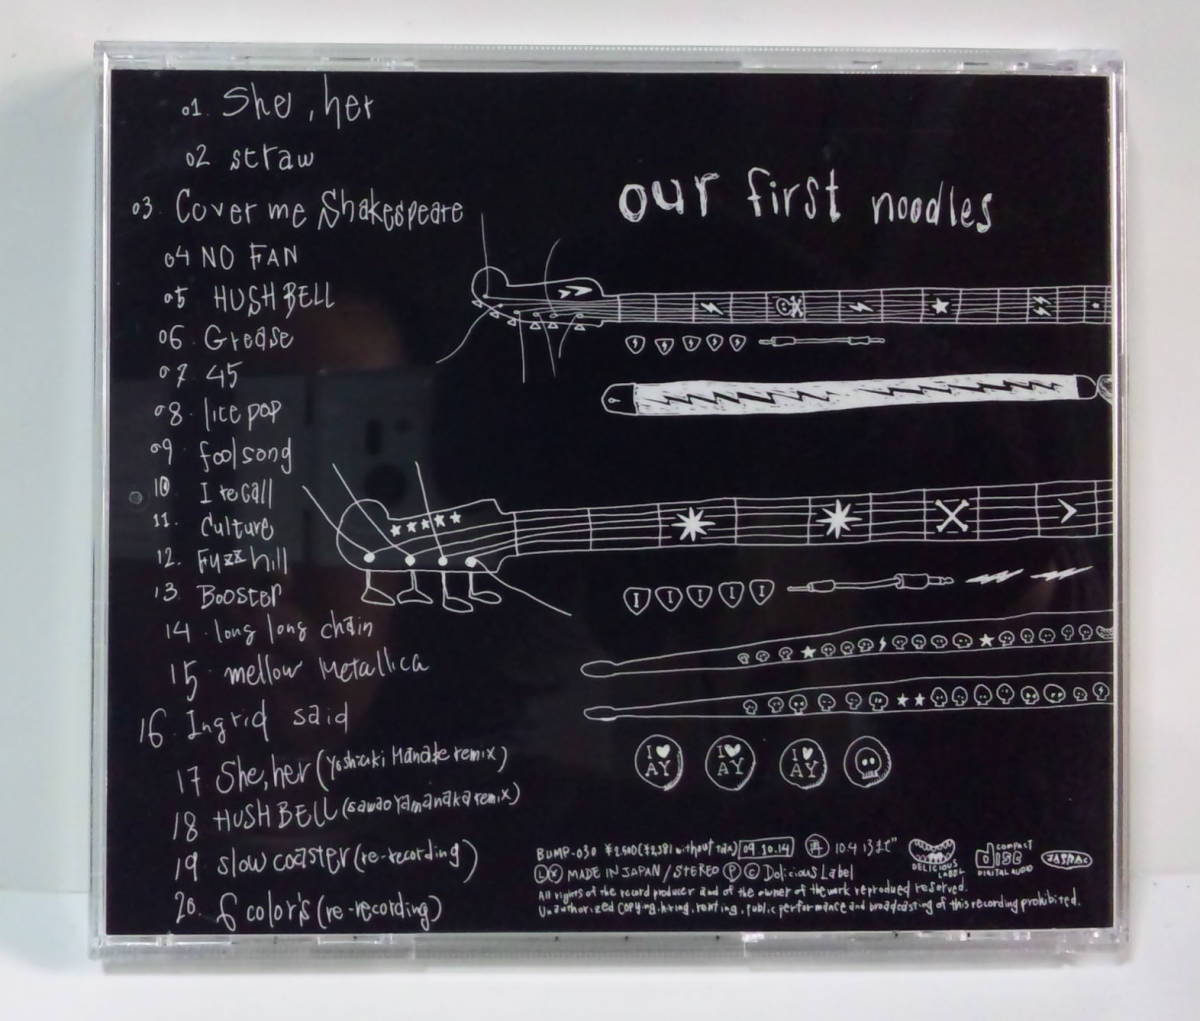 01. She, her
02 straw
03. Cover me Shakespeare
04 NO FAN
05 HUSH BELL
06. Grease
07. 45
08. lice pop
09. fool song
10 I recall
11. Culture
12. Fuzz hill
13. Booster
14. long long chain
15. mellow Metallica
16. Ingrid said
17 She, her (Yoshiaki Manabe remix)
18 HUSH BELL (sawao Yamanaka remix)
19 slow coaster (re-recording)
20. 6 color's (re-recording)
our first noodles
I I I I I
I ♥ AY
I ♥ AY
I ♥ AY
BUMP-030 ¥2,500(¥2,381 without tax) 09.10.14 再 10.4.13まで
L X MADE IN JAPAN / STEREO P C Delicious Label
All rights of the record producer and of the owner of the work reproduced reserved.
Unauthorized copying, hiring, renting, public performance and broadcasting of this recording prohibited.
DELICIOUS LABEL
COMPACT disc DIGITAL AUDIO
JASRAC